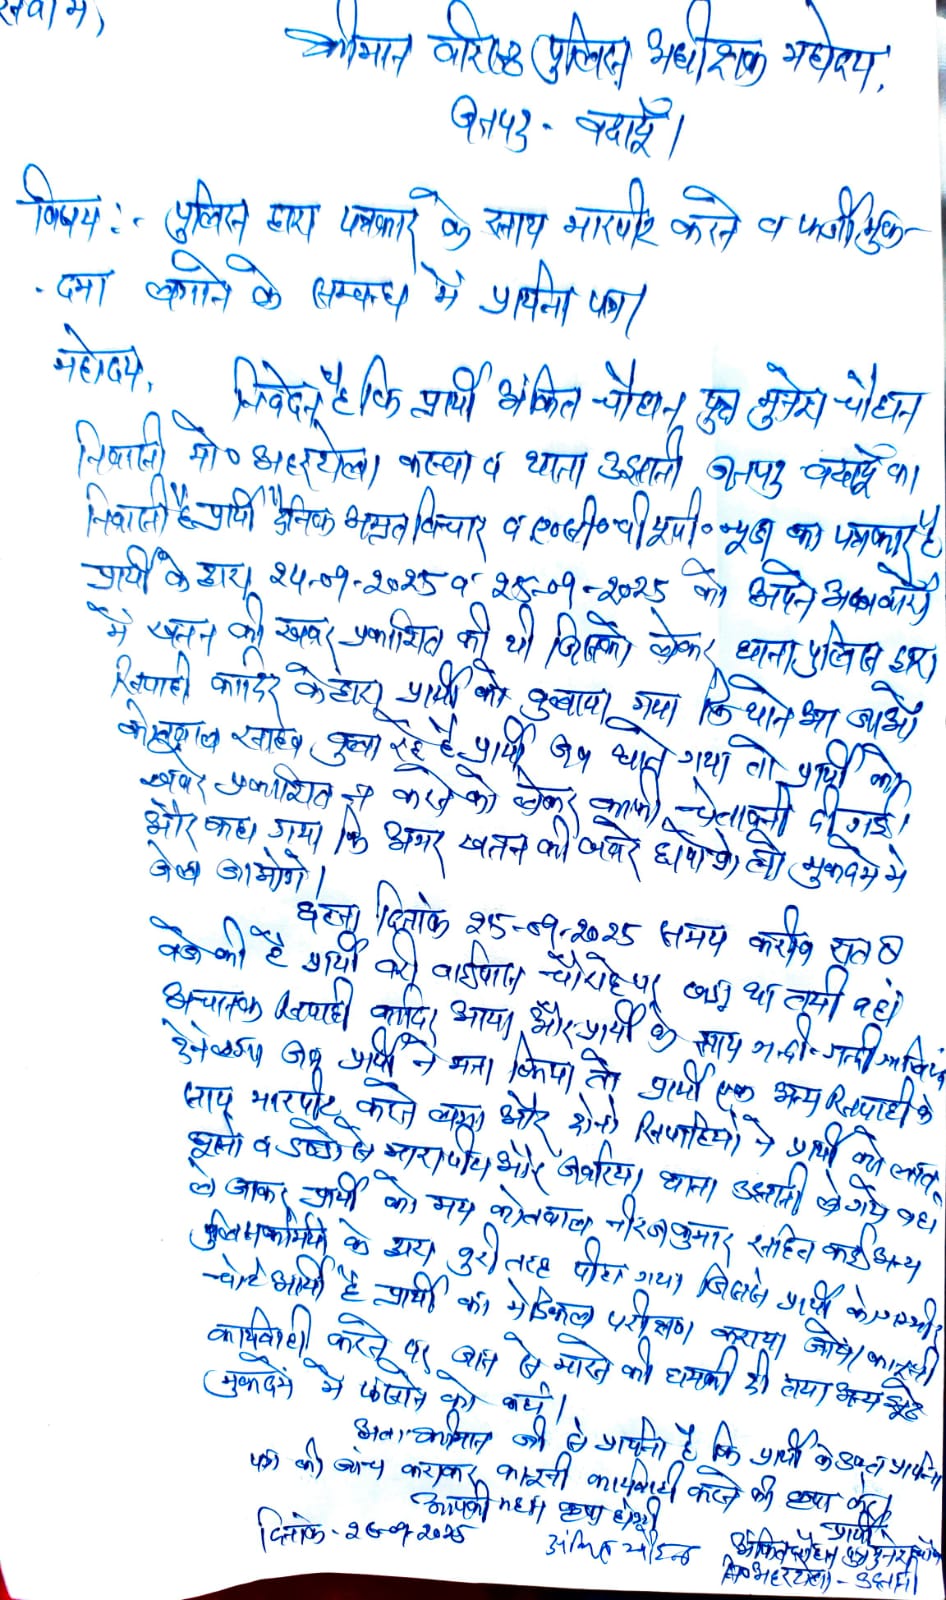 सेवा में,
श्रीमान वरिष्ठ पुलिस अधीक्षक महोदय,
जनपद - बदायूँ।
विषय :- पुलिस द्वारा पत्रकार के साथ मारपीट करने व फर्जी मुक-
-दमा लगाने के सम्बन्ध में प्रार्थना पत्र।
महोदय,
निवेदन है कि प्रार्थी अंकित चौहान पुत्र मुनेश चौहान
निवासी मो० अहरटोला कस्बा व थाना उझानी जनपद बदायूँ का
निवासी है प्रार्थी दैनिक अमृत विचार व ए०बी०पी यूपी० न्यूज का पत्रकार है
प्रार्थी के द्वारा 24-09-2025 व 25-09-2025 को अपने अखबारों
में खनन की खबर प्रकाशित की थी जिसको लेकर थाना पुलिस द्वारा
सिपाही कादिर के द्वारा प्रार्थी को बुलाया गया कि थाने आ जाओ
कोतवाल साहब बुला रहे है प्रार्थी जब थाने गया तो प्रार्थी को
खबर प्रकाशित न करने को लेकर काफी चेतावनी दी गई।
और कहा गया कि अगर खनन की खबर छापोगे तो मुकदमे मे
जेल जाओगे।
घटना दिनांक 25-09-2025 समय करीब रात 8
बजे की है प्रार्थी बरी वाईपास चौराहे पर खड़ा था तभी वहां
अचानक सिपाही कादिर आया और प्रार्थी के साथ गन्दी-गन्दी गालियां
देने लगा जब प्रार्थी ने मना किया तो प्रार्थी एक अन्य सिपाही के
साथ मारपीट करने लगा और दोनो सिपाहियों ने प्रार्थी को लात
घूसो व डण्डो से मारापीटा और जबरिया थाना उझानी ले गये वहां
ले जाकर प्रार्थी को मय कोतवाल नीरज कुमार सहित कई अन्य
पुलिसकर्मियों के द्वारा बुरी तरह पीटा गया जिससे प्रार्थी के गम्भीर
चोटे आयी है प्रार्थी का मेडिकल परीक्षण कराया जाये। कानूनी
कार्यवाही करने पर जान से मारने की धमकी दी तथा अन्य झूठे
मुकदमे में फसाने को कहा।
अतः श्रीमान जी से प्रार्थना है कि प्रार्थी के उक्त प्रार्थना
पत्र की जांच कराकर कानूनी कार्यवाही करने की कृपा करें।
आपकी महान कृपा होगी
दिनांक- 26-09-2025
अंकित चौहान
प्रार्थी
अंकित चौहान पुत्र मुनेश चौहान
नि० अहरटोला - उझानी